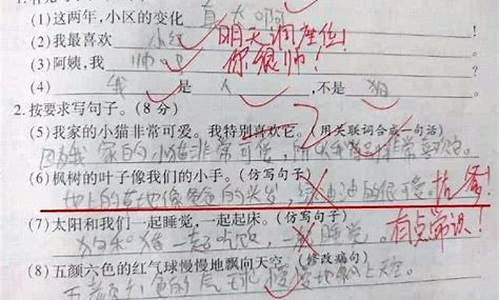 (1)这两年,小区的变化 真大啊
(2)我最喜欢 小红 明天调座位!
(3)阿姨,我 帅吗 你很帅!
(4) 我 是 人 ,不是 狗
2.按要求写句子。(8分)
(5)我家的小猫非常可爱。我特别喜欢它。(用关联词合成一句话)
因为我家的小猫非常可爱,所以我 非常喜欢它。
(6)枫树的叶子像我们的小手。(仿写句子)
地上的草地像爸爸的头发,绿油油的很可爱。
(7)太阳和我们一起睡觉,一起起床。(仿写句子) 有点常识!
一起吃饭,一起睡觉。
(8)五颜六色的红气球慢慢地飘向天空。(修改病句)
五颜六色的气球慢慢地飘上天空。